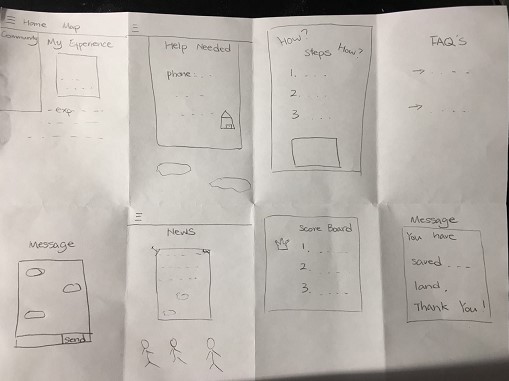 Home Map
Community
My Experience
exp
Help Needed
phone:
How?
steps How?
1.
2
3
FAQ'S
Message
send
News
Score Board
1.
2.
3.
Message
You have
saved
land.
Thank You!